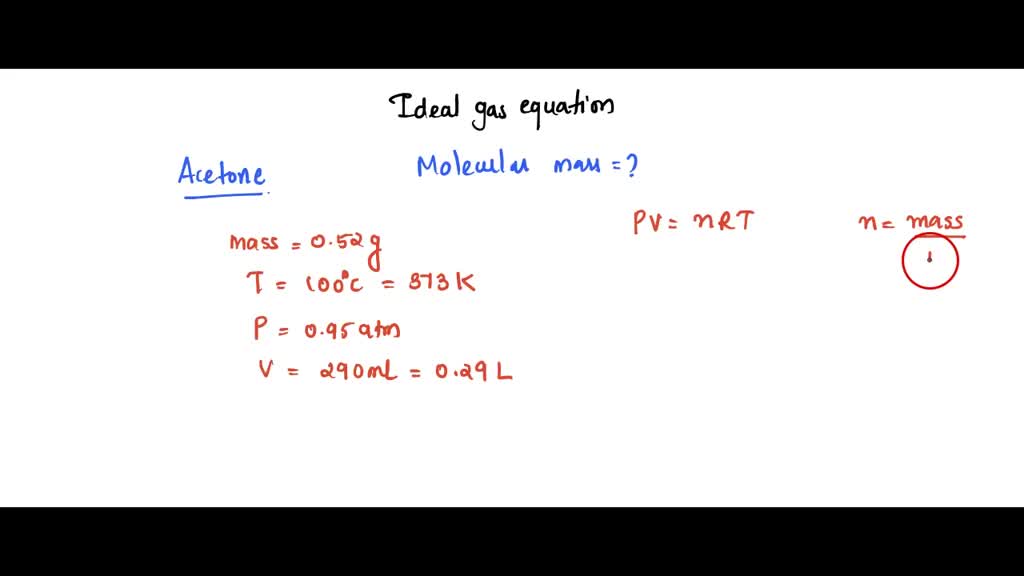 Ideal gas equation
Acetone Molecular mass = ?
PV = nRT n = mass
mass = 0.52 g
T = 100°C = 373 K
P = 0.95 atm
V = 290 mL = 0.29 L